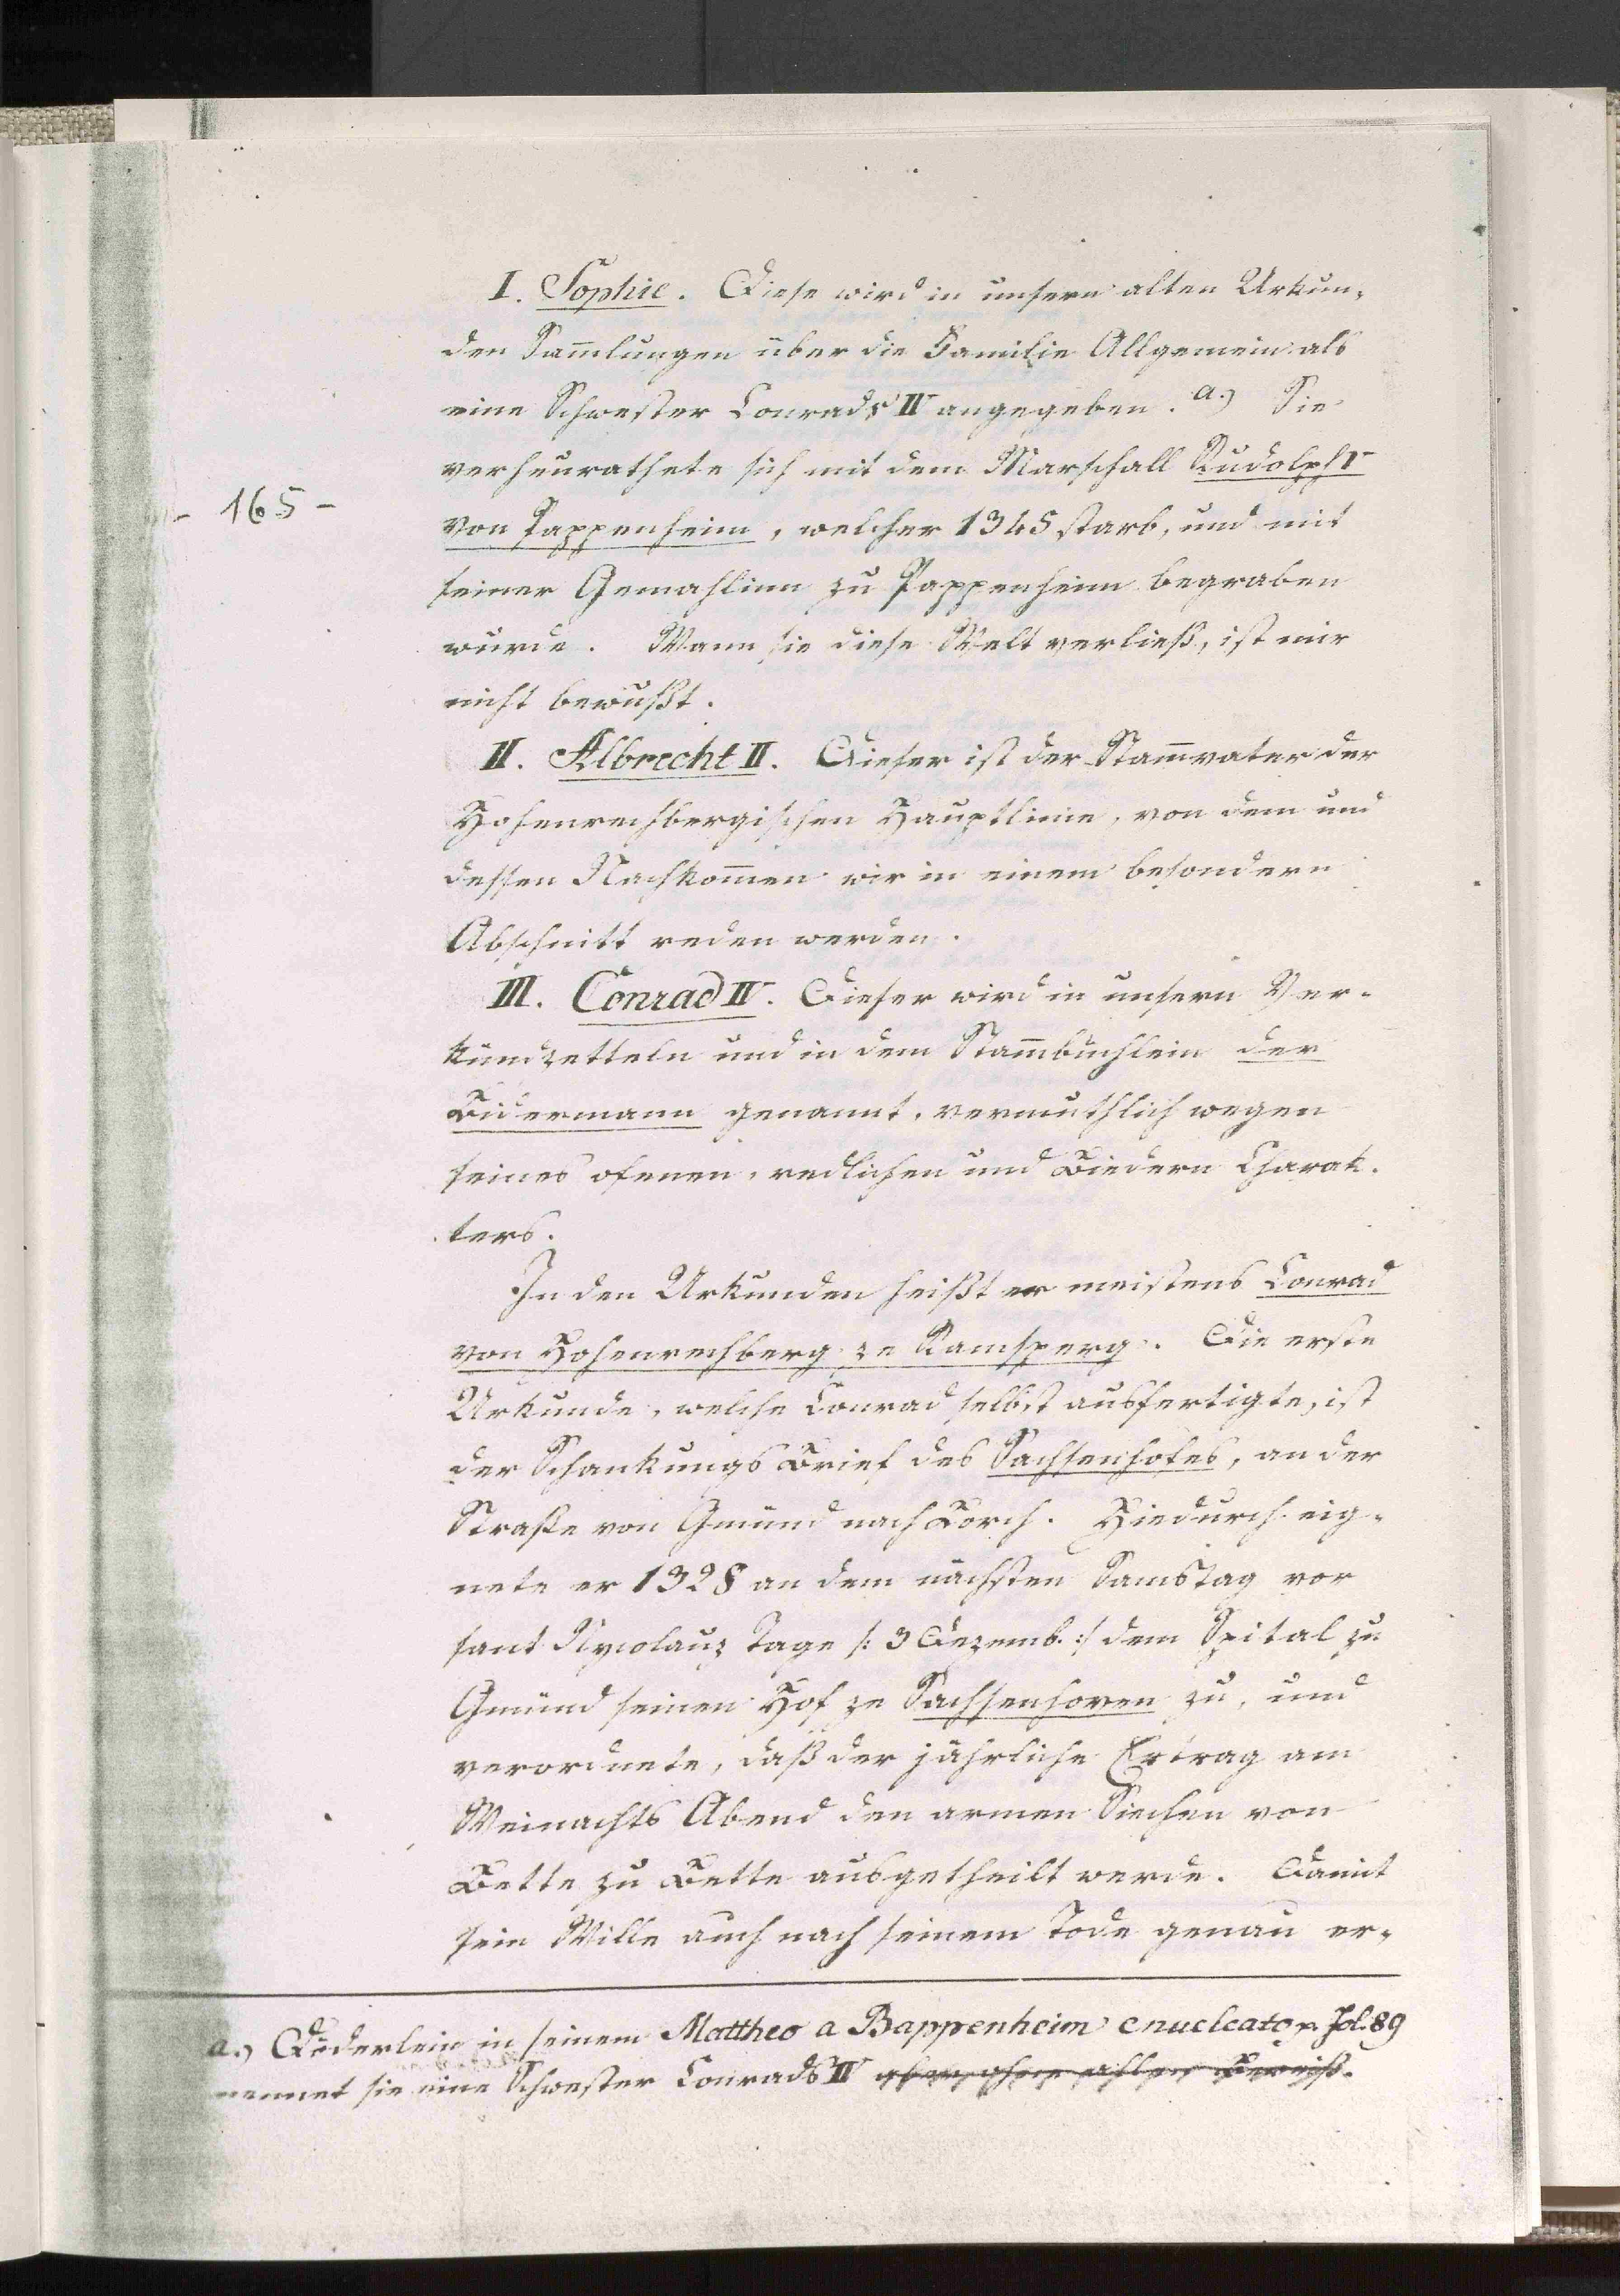 I. Sophie. Diese wird in unsern alten Urkun-
den Sam̅lungen über die Familie Allgemein als
eine Schwester Conrads IV angegeben. a.) Sie
verheurathete sich mit dem Marschall Rudolph
- 165 -
von Pappenheim, welcher 1345 starb, und mit
seiner Gemahlinn zu Pappenheim begraben
wurde. Wann sie diese Welt verließ, ist mir
nicht bewußt.
II. Albrecht II. Dieser ist der Stam̅vater der
Hohenrechbergischen Hauptlinie, von dem und
dessen Nachkom̅en wir in einem besondern
Abschnitt reden werden.
III. Conrad IV. Dieser wird in unsern Ver-
kündzetteln und in dem Stam̅büchlein der
Bidermann genannt, vermuthlich wegen
seines ofenen, redlichen und Biedern Charak-
ters.
In den Urkunden heißt er meistens Conrad
von Hohenrechberg ze Ramsperg. Die erste
Urkunde, welche Conrad selbst ausfertigte, ist
der Schankungs Brief des Sachsenhofes, an der
Straße von Gmünd nach Lorch. Hiedurch eig-
nete er 1328 an dem nächsten Samstag vor
sant Nycolauz Tage /: 3 Dezemb. :/ dem Spital zu
Gmünd seinen Hof ze Sachsenhoven zu, und
verordnete, daß der jährliche Ertrag am
Weinachts Abend den armen Siechen von
Bette zu Bette ausgetheilt werde. Damit
sein Wille auch nach seinem Tode genau er-
a.) Döderlein in seinem Mattheo a Bappenheim enucleato p. Fol. 89
nennet sie eine Schwester Conrads IV aber ohne allen Beweiß.